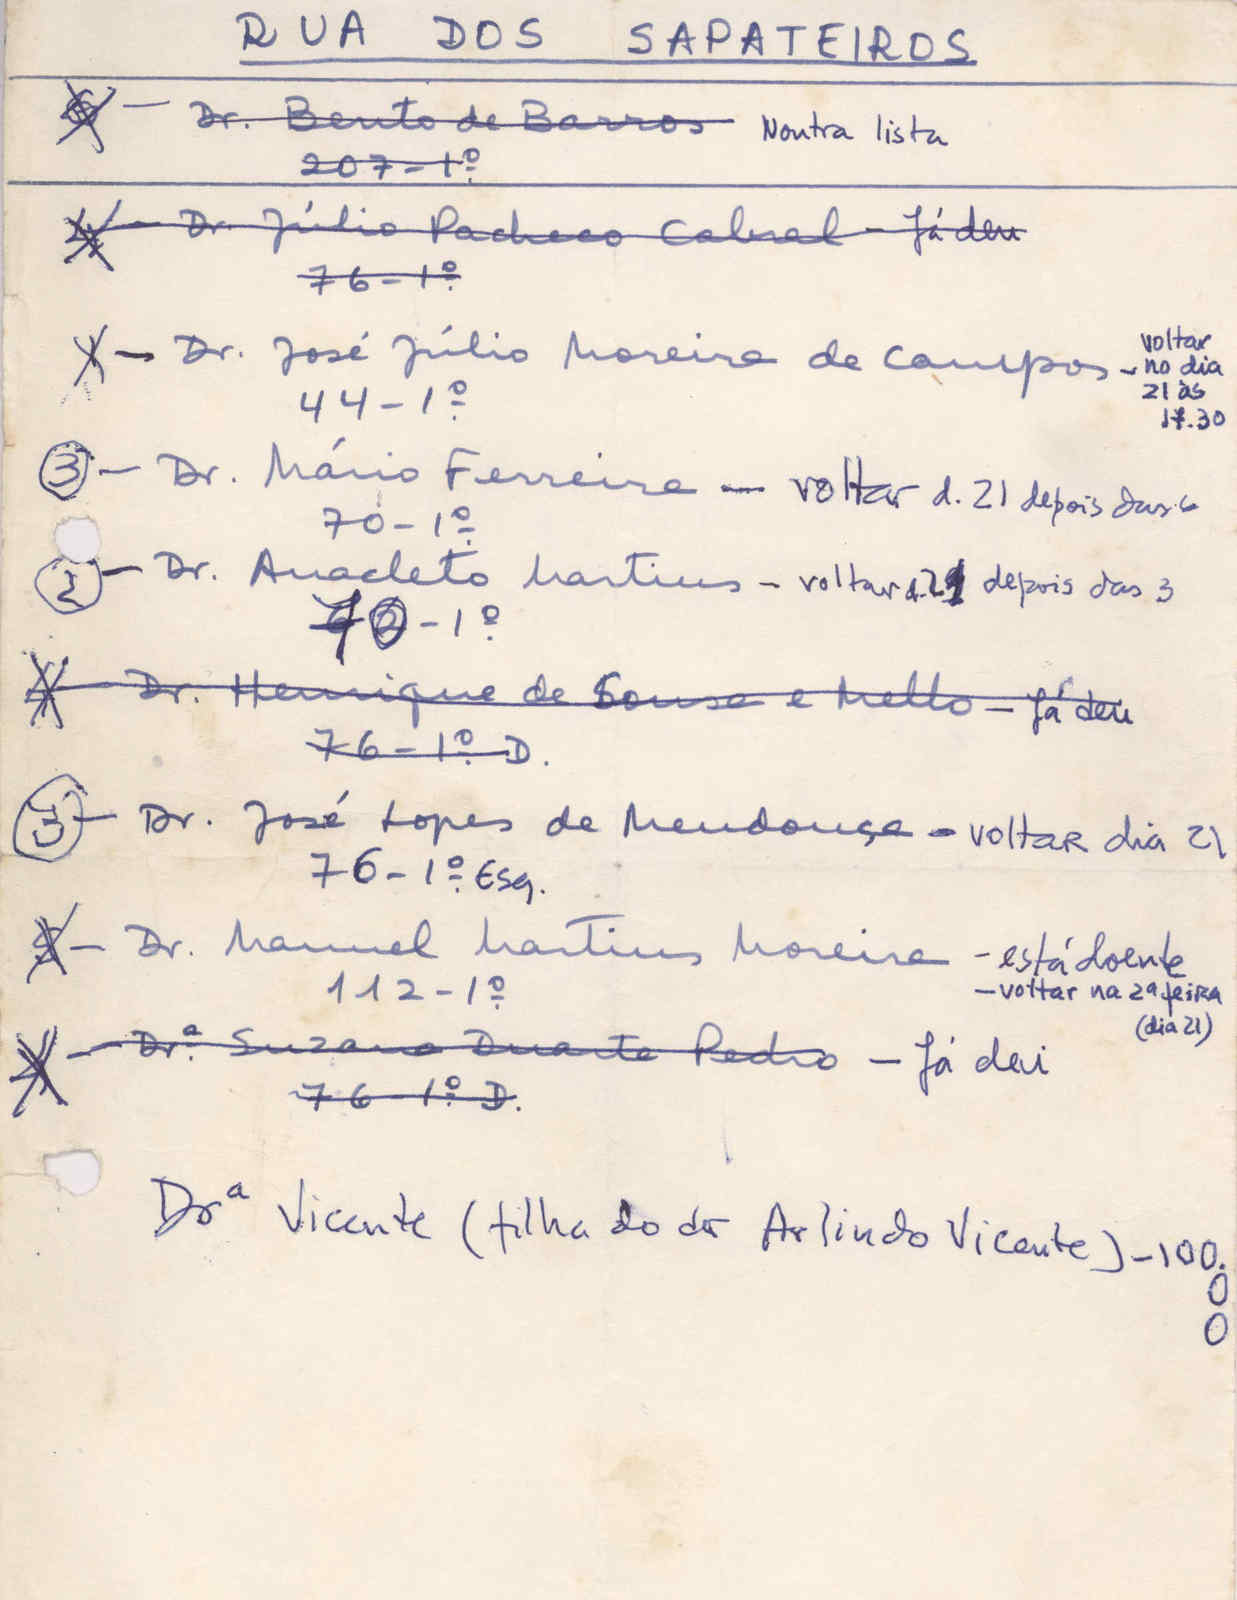 RUA DOS SAPATEIROS
— Dr. Bento de Barros Noutra lista
207-1º
— Dr. Júlio Pacheco Cabral - Já deu
76-1º
— Dr. José Júlio Moreira de Campos - voltar
no dia
21 às
17.30
44-1º
3 — Dr. Mário Ferreira — voltar d. 21 depois das 6
70-1º
2 — Dr. Anacleto Martins - voltar d. 21 depois das 3
-1º
— Dr. Henrique de Sousa e Mello - Já deu
76-1º D.
3 — Dr. José Lopes de Mendonça - voltar dia 21
76-1º Esq.
— Dr. Manuel Martins Moreira - está doente
- voltar na 2ª feira
(dia 21)
112-1º
— Dr.ª Suzana Duarte Pedro - Já deu
76-1º D.
Drª Vicente (filha do dr Arlindo Vicente) - 100.
0
0